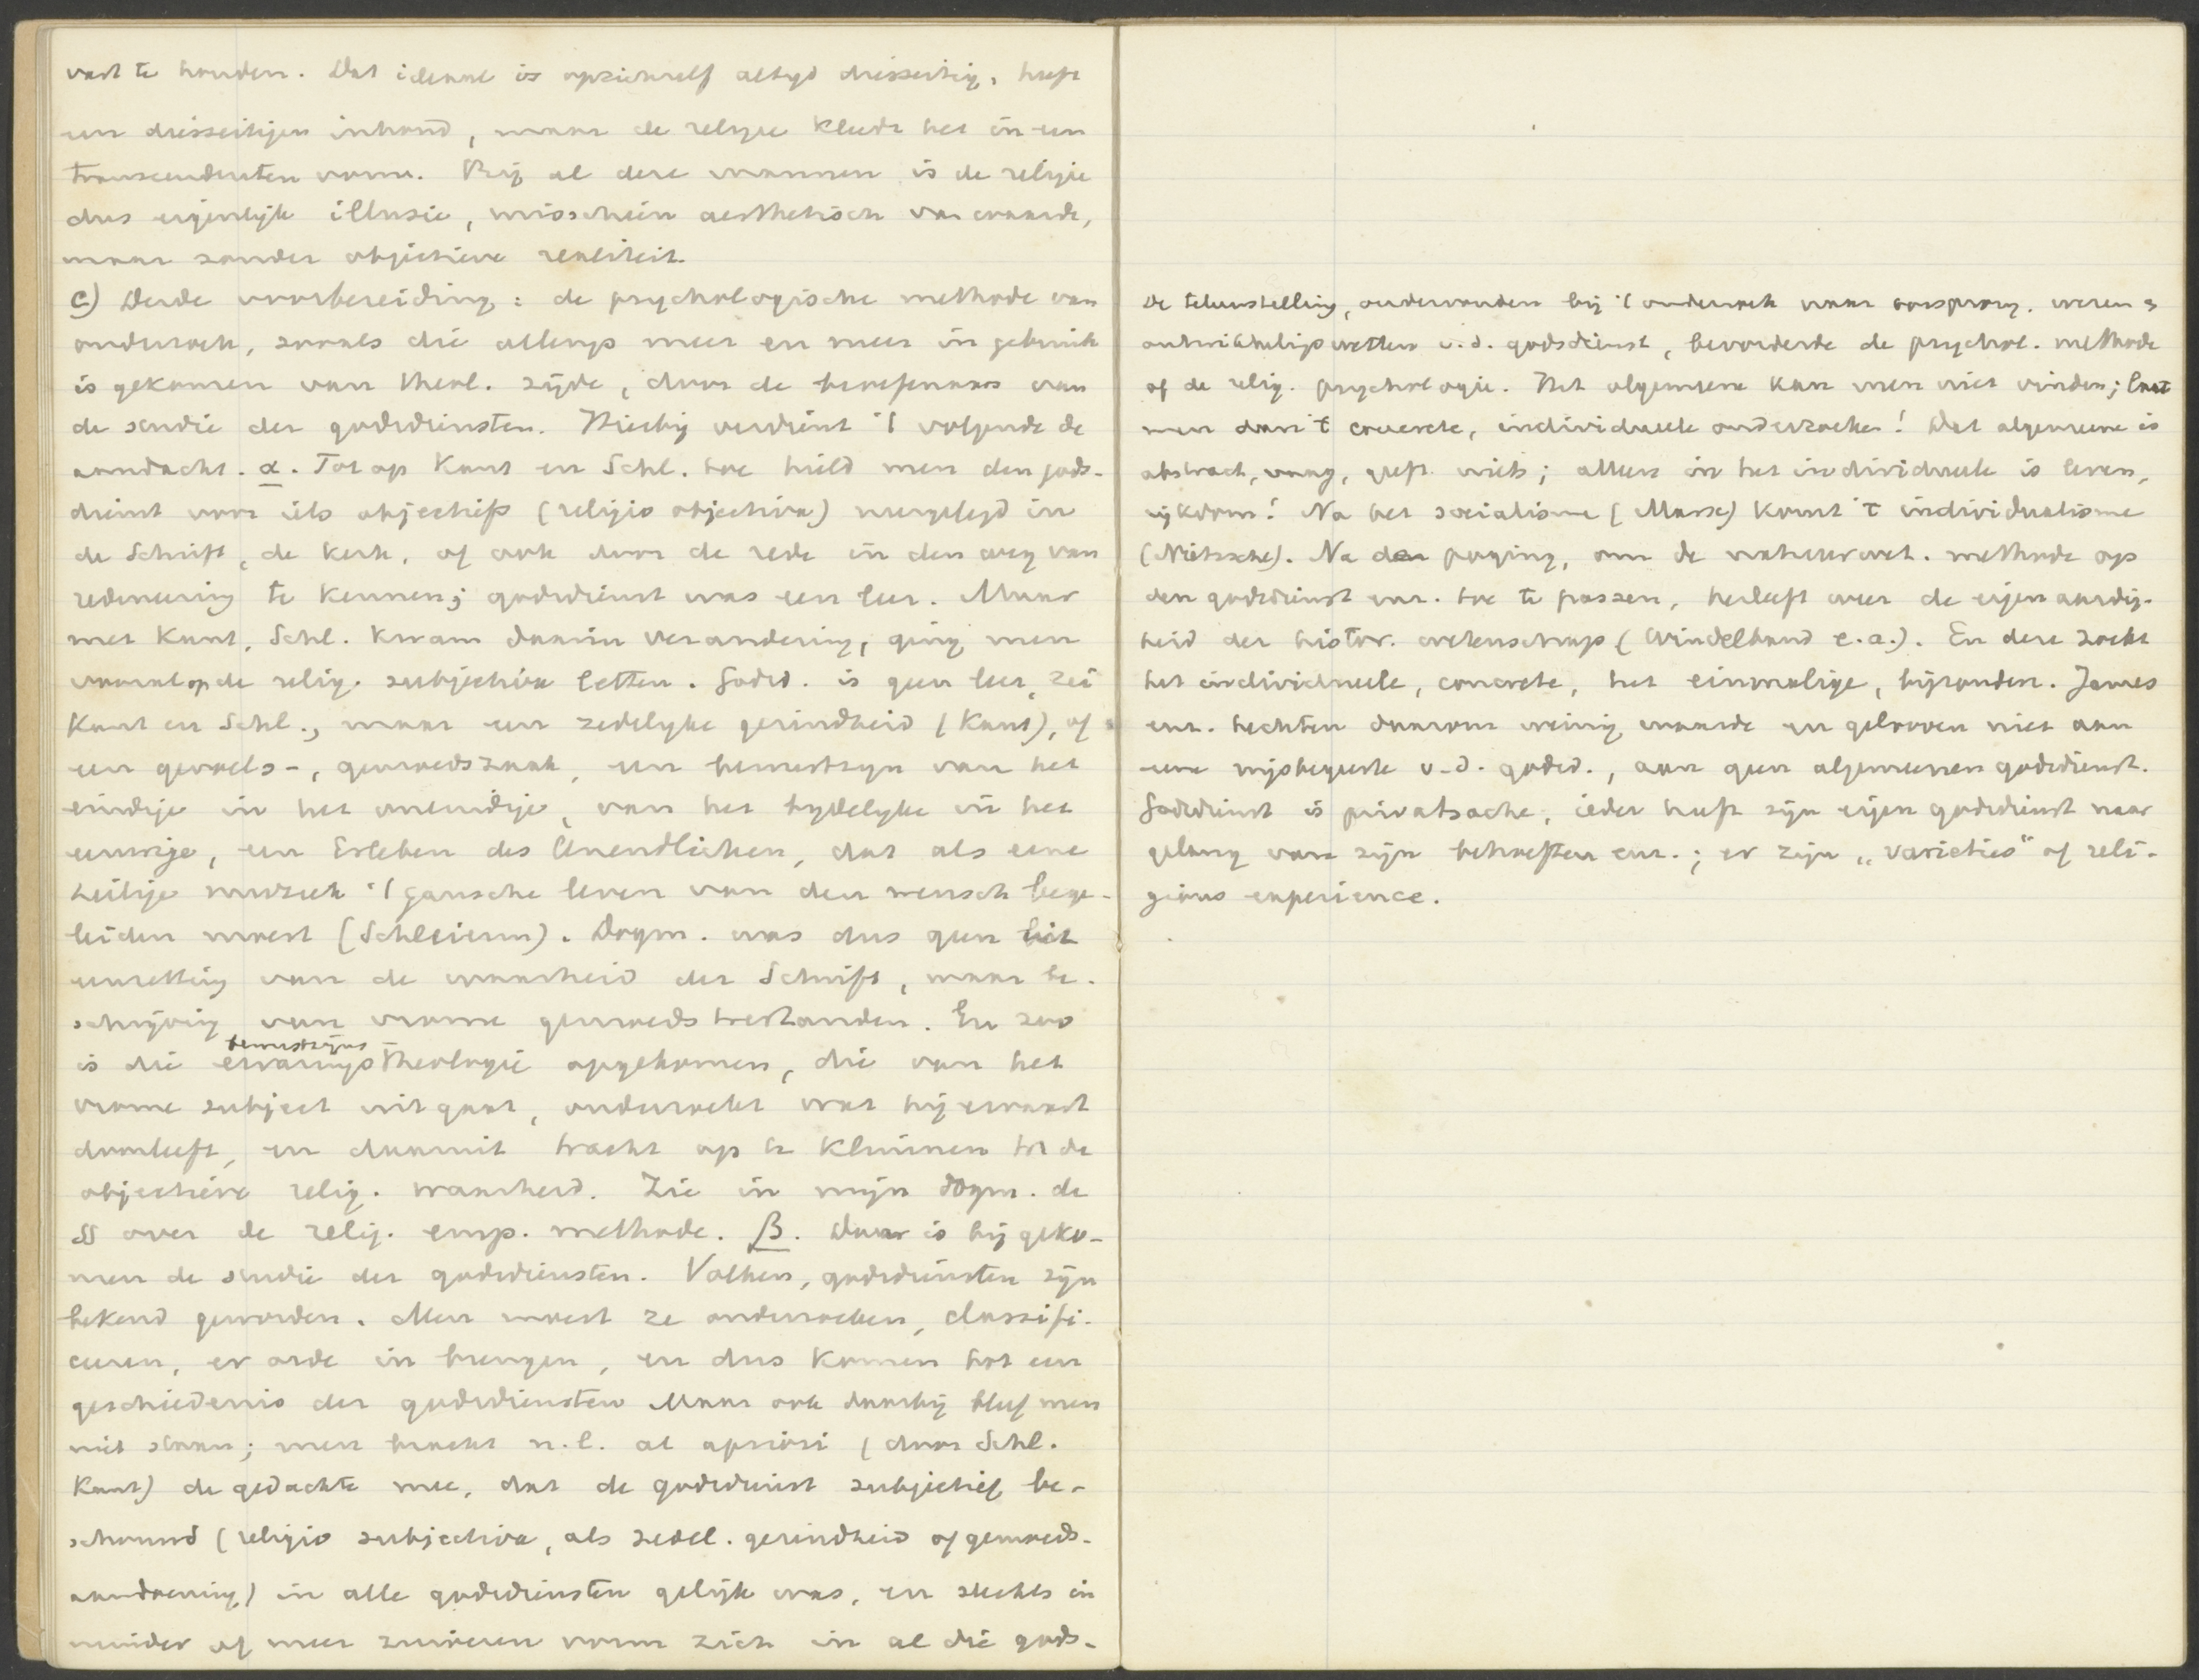 vast te houden. Dat ideaal is opzichzelf altyd diesseitig, heeft
een diesseitigen inhoud, maar de religie kleedt het in een
transcendenten vorm. Bij al deze mannen is de religie
dus eigenlijk illusie, misschien aesthetisch van waarde,
maar zonder objectieve realiteit.
c) Derde voorbereiding: de psychologische methode van
onderzoek, zooals die allengs meer en meer in gebruik
is gekomen van theol. zijde, door de beoefenaars van
de studie der godsdiensten. Hierbij verdient 't volgende de
aandacht. α. Tot op Kant en Schl. toe hield men den gods-
dienst voor iets objectiefs (religio objectiva) neergelegd in
de Schrift, de kerk, of ook door de rede in den weg van
redeneering te kennen; godsdienst was een leer. Maar
met Kant, Schl. kwam daarin verandering, ging men
vooral op de relig. subjectiva letten. Godsd. is geen leer, zei
Kant en Schl., maar een zedelyke gezindheid (Kant), of
een gevoels-, gemoedszaak, een bewustzyn van het
eindige in het oneindige, van het tydelyke in het
eeuwige, een Erleben des Unendlichen, dat als eene
heilige muziek 't gansche leven van den mensch bege-
leiden moest (Schleierm). Dogm. was dus geen uit
eenzetting van de waarheid der Schrift, maar be-
schrijving van vrome gemoedstoestanden. En zoo
bewustzijns
is die ervaringstheologie opgekomen, die van het
vrome subject uitgaat, onderzoekt wat hij ervaart
doorleeft, en daaruit tracht op te klimmen tot de
objectieve relig. waarheid. Zie in mijn Dogm. de
§§ over de relig. emp. methode. β. Daar is bij geko-
men de studie der godsdiensten. Volken, godsdiensten zijn
bekend geworden. Men moest ze onderzoeken, classifi-
ceeren, er orde in brengen, en dus komen tot een
geschiedenis der godsdiensten Maar ook daarbij bleef men
niet staan; men bracht n.l. al apriori (door Schl.
Kant) de gedachte mee, dat de godsdienst subjectief be-
schouwd (religio subjectiva, als zedel. gezindheid of gemoeds-
aandoening) in alle godsdiensten gelijk was, en slechts in
minder of meer zuiveren vorm zich in al die gods-
De teleurstelling, ondervonden bij 't onderzoek naar oorsprong, wezen &
ontwikkelingswetten v.d. godsdienst, bevorderde de psychol. methode
of de relig. psychologie. Het algemeene kan men niet vinden; laat
men dan 't concrete, individueele onderzoeken! Dat algemeene is
abstract, vaag, geeft niets; alleen in het individueele is leven,
rijkdom! Na het socialisme (Marx) komt 't individualisme
(Nietzsche). Na den poging, om de natuurwet. methode op
den godsdienst enz. toe te passen, herleeft weer de eigenaardig-
heid der histor. wetenschap (Windelband e.a.). En deze zoekt
het individueele, concrete, het einmalige, bijzondere. James
enz. hechten daarom weinig waarde en gelooven niet aan
eene wijsbegeerte v.d. godsd., aan geen algemeenen godsdienst.
Godsdienst is privatsache, ieder heeft zijn eigen godsdienst naar
gelang van zijn behoeften enz.; er zijn „varieties" of reli-
gious experience.